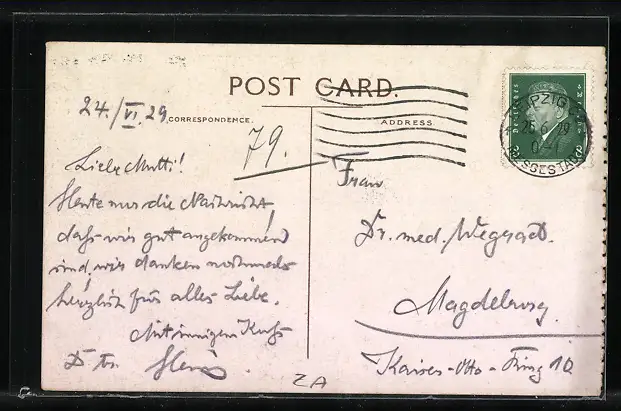 POST CARD.
24./VI.29
CORRESPONDENCE.
ADDRESS.
79.
Liebe Mutti!
Heute nur die Nachricht,
daß wir gut angekommen
sind, wir danken nochmals
herzlich für alles Liebe.
Mit innigem Kuß
D. tr.
Frau
Dr. med. Wegrad.
Magdeburg
Kaiser-Otto-Ring 10
ZA
LEIPZIG
25.6.29
DEUTSCHES